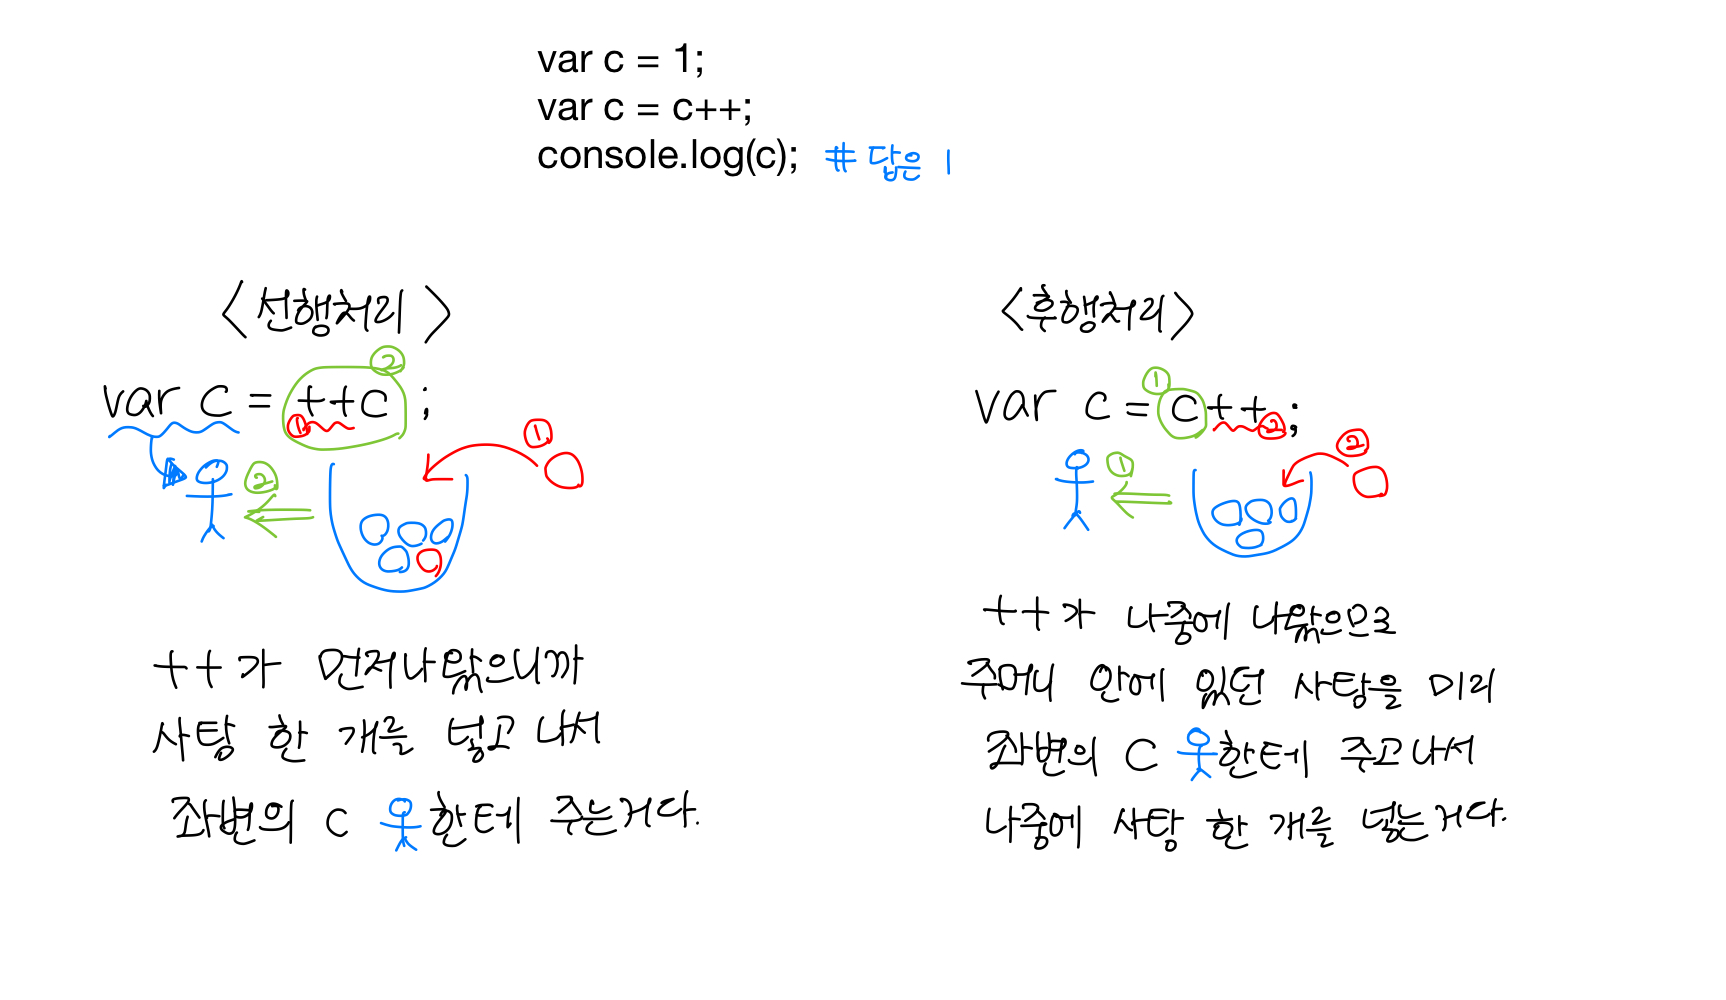 var c = 1;
var c = c++;
console.log(c); # 답은 1
<선행처리>
②
var c = ++c ;
①
①
②
++가 먼저나왔으니까
사탕 한 개를 넣고 나서
좌변의 c 한테 주는거다.
<후행처리>
①
var c = c++ ;
②
②
①
++가 나중에 나왔으므로
주머니 안에 있던 사탕을 미리
좌변의 C 한테 주고나서
나중에 사탕 한 개를 넣는거다.